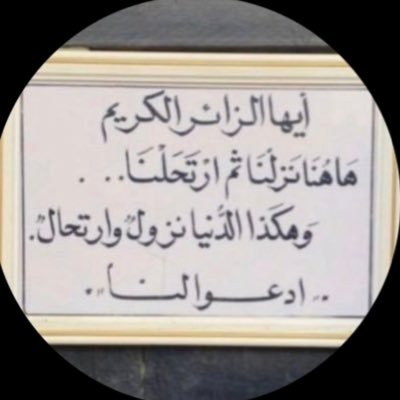 أيها الزائر الكريم
هَا هُنَا نَزلْنَا ثم ارْتَحَلْنَا . . .
وَهكَذا الدُّنيا نزولٌ وارتحالٌ.
ادعــوا لنــا